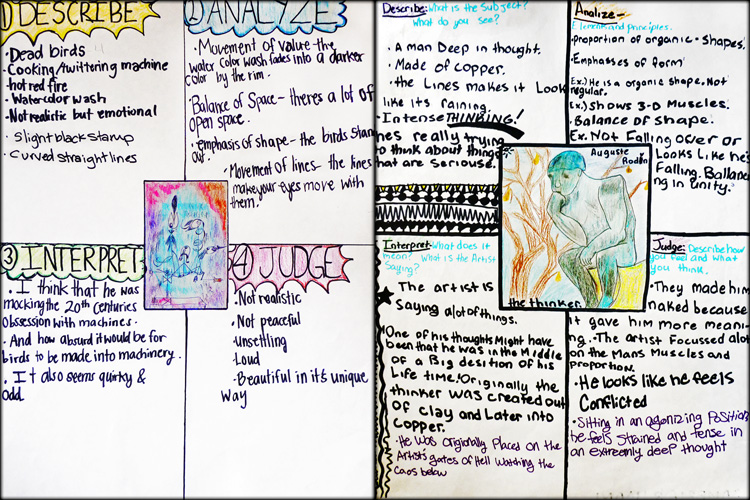 ① DESCRIBE
• Dead birds
• Cooking/twittering machine
• hot red fire
• Watercolor wash
• Not realistic but emotional
• Slight black stamp
• Curved straight lines
① ANALYZE
• Movement of value - the
water color wash fades into a darker
color by the rim.
• Balance of Space - theres a lot of
open space.
• emphasis of shape - the birds stan
out.
• Movement of lines - the lines
make your eyes move with
them.
③ INTERPRET
• I think that he was
mocking the 20th centuries
Obsession with machines.
• And how absurd it would be for
birds to be made into machinery.
• It also seems quirky &
odd.
④ JUDGE
• Not realistic
• Not peaceful
• Unsettling
• Loud
• Beautiful in it's unique
way
Describe: What is the Subject?
What do you see?
• A man Deep in thought.
• Made of copper.
• the Lines makes it Look
like its raining.
• Intense THINKING!
hes really trying
to think about things
that are seriouse.
Analize -
Elements and principles.
• Proportion of organic - Shapes.
• Emphases of form
Ex.) He is a organic shape. Not
regular.
Ex.) Shows 3-D Muscles.
• Balance of shape.
Ex. Not Falling over or
Looks Like he's
Falling. Ballanc
ing in unity.
Auguste
Rodin
the thinker
Interpret: What does it
mean? What is the Artist
Saying?
The artist is
Saying alot of things.
One of his thoughts Might have
been that he was in the Middle
of a Big desition of his
Life time. Originally the
thinker was created out
of clay and Later into
copper.
• He was originally placed on the
Artist's gates of Hell watching the
Caos below
Judge: Describe how
you feel and what
you think.
• They made him
naked because
it gave him more meani
ng. • The artist focussed alot
on the Mans Muscles and
proportion.
• He looks like he feels
Conflicted
• Sitting in an agonizing position
he feels strained and tense in
an extreemly deep thought